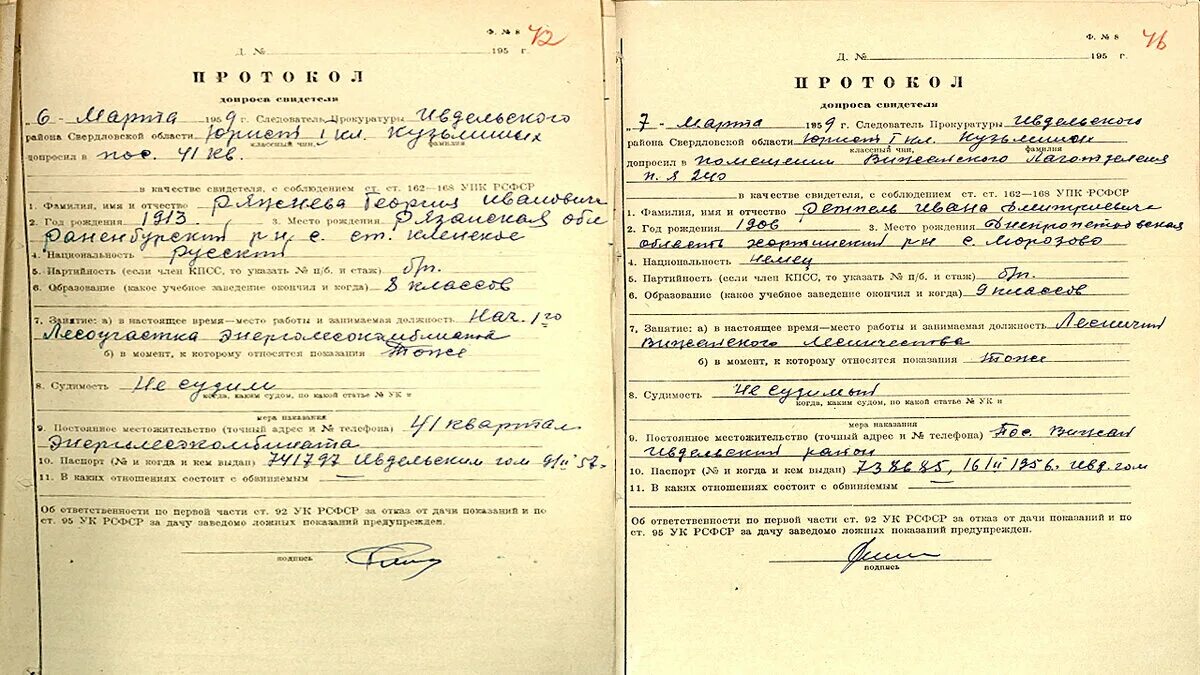 Ф. № 8
42
Д. № 195 г.
ПРОТОКОЛ
допроса свидетеля
„6 - Марта 1959 г. Следователь Прокуратуры Ивдельского
района Свердловской области Юрист I кл. Кузьминых
классный чин, фамилия
допросил в пос. 41 кв.
в качестве свидетеля, с соблюдением ст. ст. 162—168 УПК РСФСР
1. Фамилия, имя и отчество Ряжнева Георгия Ивановича
2. Год рождения 1913 3. Место рождения Рязанская обл
Раненбурский р-н с. ст. Кленское
4. Национальность русский
5. Партийность (если член КПСС, то указать № п/б. и стаж) б/п.
6. Образование (какое учебное заведение окончил и когда) 8 классов
7. Занятие: а) в настоящее время—место работы и занимаемая должность Нач. 1го
Лесоучастка Энерголесокомбината
б) в момент, к которому относятся показания тоже
8. Судимость Не судим
когда, каким судом, по какой статье № УК и
мера наказания
9. Постоянное местожительство (точный адрес и № телефона) 41 квартал
Энерголесокомбината
10. Паспорт (№ и когда и кем выдан) 741797 Ивдельским гом 9/II 57.
11. В каких отношениях состоит с обвиняемым —
Об ответственности по первой части ст. 92 УК РСФСР за отказ от дачи показаний и по
ст. 95 УК РСФСР за дачу заведомо ложных показаний предупрежден.
подпись
Ф. № 8
46
Д. № 195 г.
ПРОТОКОЛ
допроса свидетеля
„7 - Марта 1959 г. Следователь Прокуратуры Ивдельского
района Свердловской области Юрист I кл. Кузьминых
классный чин, фамилия
допросил в помещении Вижайского Лаготделения
п. я 240
в качестве свидетеля, с соблюдением ст. ст. 162—168 УПК РСФСР
1. Фамилия, имя и отчество Ивана Дмитриевича
2. Год рождения 1906 3. Место рождения Днепропетровская
область р-н с. Морозово
4. Национальность немец
5. Партийность (если член КПСС, то указать № п/б. и стаж) б/п.
6. Образование (какое учебное заведение окончил и когда) 9 классов
7. Занятие: а) в настоящее время—место работы и занимаемая должность Лесничий
Вижайского Лесничества
б) в момент, к которому относятся показания тоже
8. Судимость Не судимый
когда, каким судом, по какой статье № УК и
мера наказания
9. Постоянное местожительство (точный адрес и № телефона) Пос. Вижай
Ивдельский район
10. Паспорт (№ и когда и кем выдан) 738685, 16/II 1956. Ивд. гом
11. В каких отношениях состоит с обвиняемым —
Об ответственности по первой части ст. 92 УК РСФСР за отказ от дачи показаний и по
ст. 95 УК РСФСР за дачу заведомо ложных показаний предупрежден.
подпись